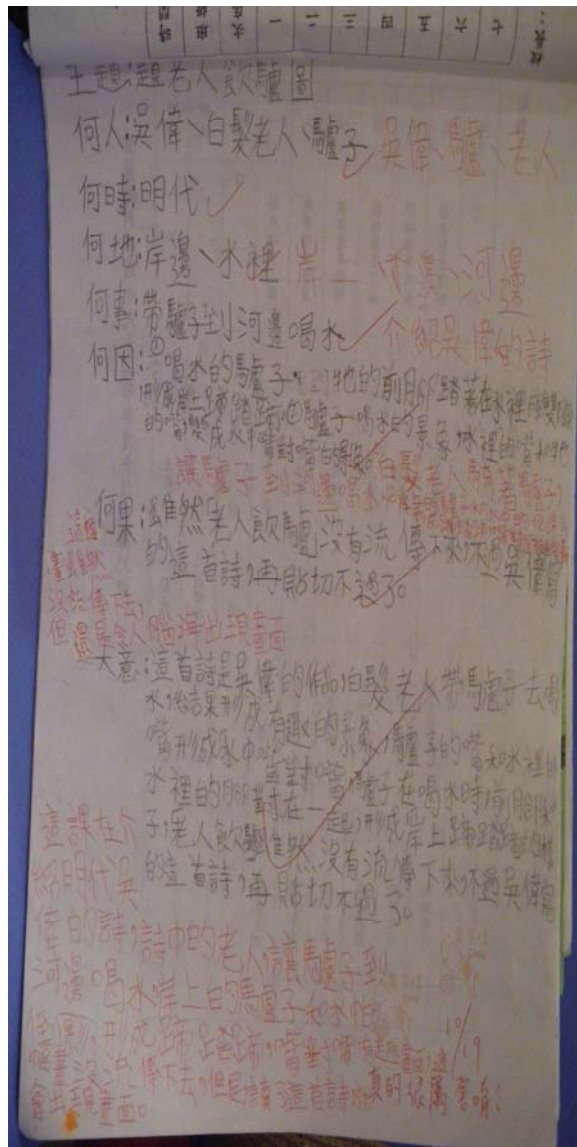 時間
班級
失席
一
二
三
四
五
六
七
校長:
主題:題老人飲驢圖
何人:吳偉、白髮老人、驢子 吳偉、驢、老人
何時:明代
何地:岸邊、水裡 岸上、水邊、河邊
何事:帶驢子到河邊喝水 介紹吳偉的詩
何因:①喝水的驢子,牠的前腳踏著在水裡的雙腳
形成岸上蹄踏蹄②驢子喝水的景象,水裡的嘴和牠
的嘴變成水中嘴對嘴的
讓驢子到河邊喝水 白髮老人騎著驢子
何果:雖然老人飲驢沒有流傳下來,不過吳偉寫
的這首詩,再貼切不過了。
這幅
畫雖然
沒流傳下去,
但還是令人腦海出現畫面
大意:這首詩是吳偉的作品,白髮老人帶馬驢子去喝
水,結果形成有趣的景象,驢子的嘴和水裡的
嘴形成水中嘴對嘴,驢子在喝水時,前腳和
水裡的腳對在一起,形成岸上蹄踏蹄的樣
子,老人飲驢雖然沒有流傳下來,不過吳偉寫
的這首詩,再貼切不過了。
這課在介
紹明代吳
偉的詩,詩中的老人,讓驢子到
河邊喝水,岸上的驢子和水中的
倒影,形成蹄踏蹄,嘴對嘴有趣畫面,這
幅畫沒流傳下去,但是讀了這首詩
會出現畫面。
真的很厲害唷!
10/19